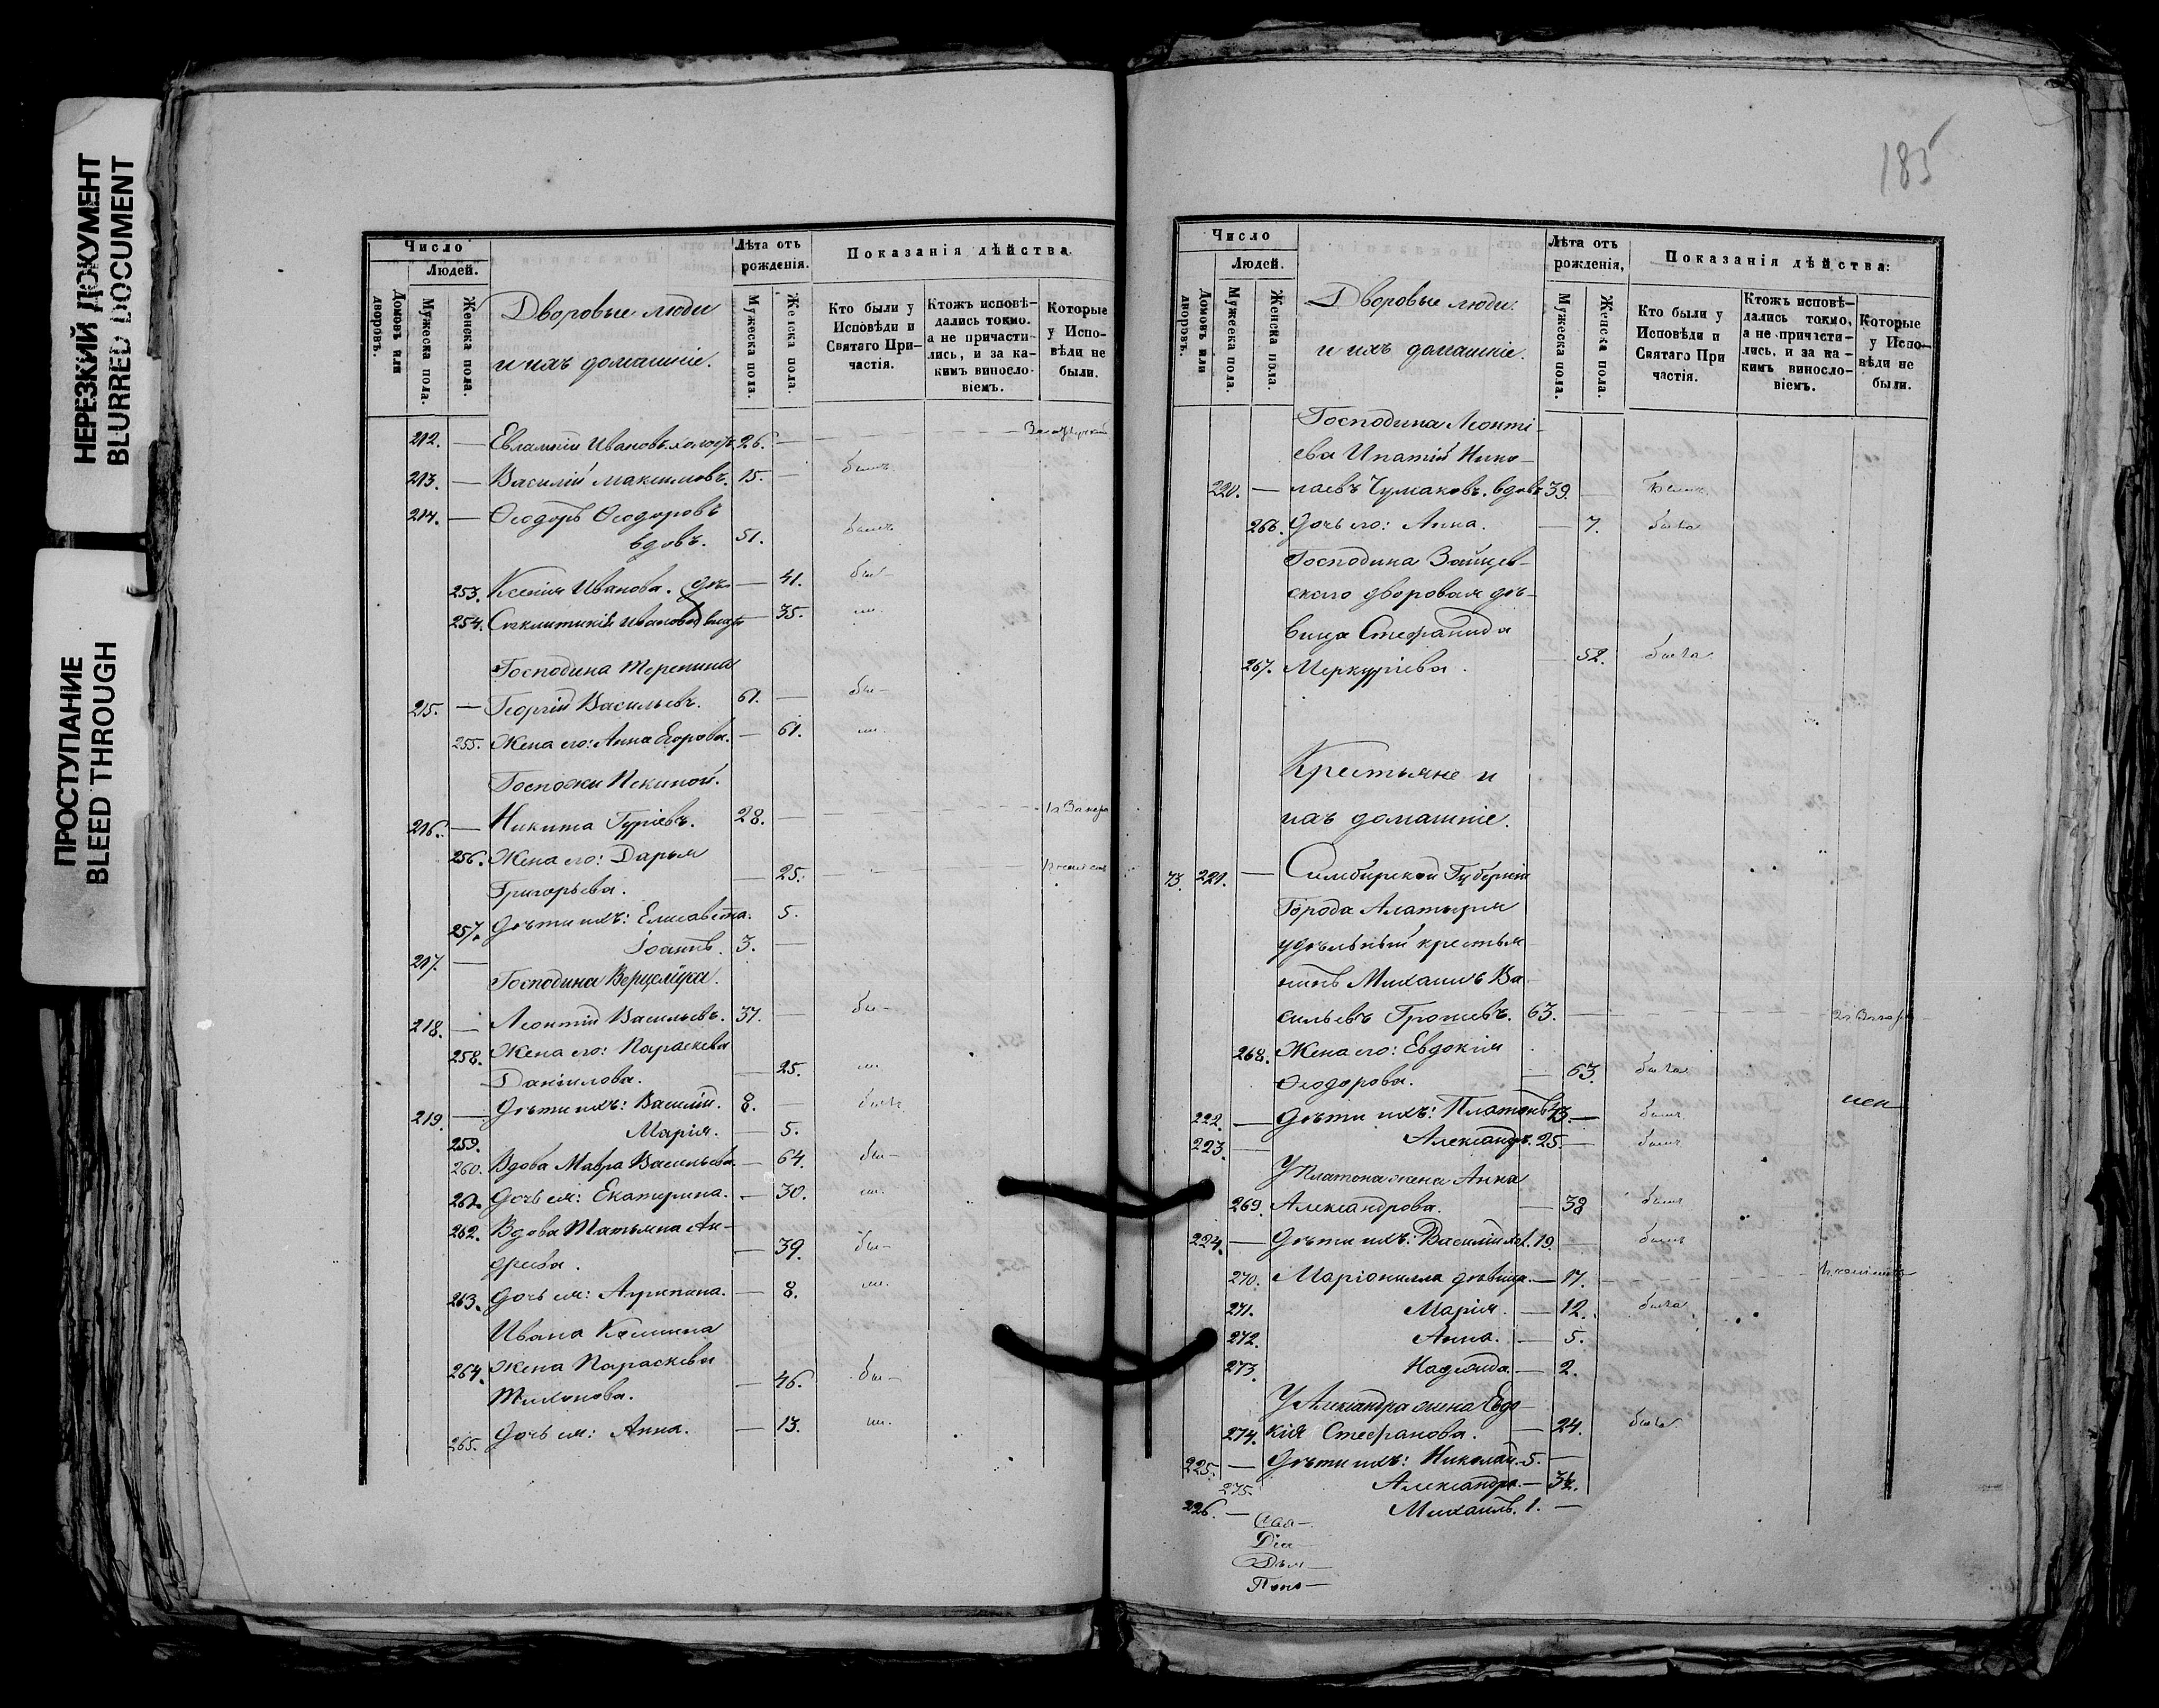 НЕРЕЗКИЙ ДОКУМЕНТ
BLURRED DOCUMENT
ПРОСТУПАНИЕ
BLEED THROUGH
Число
Людей.
Домовъ или дворовъ.
Мужеска пола.
Женска пола.
Дворовые люди
и ихъ домашніе.
Лѣта отъ рожденія.
Мужеска пола.
Женска пола.
Показанія дѣйства
Кто были у Исповѣди и Святаго Причастія.
Ктожъ исповѣдались токмо. а не причастились, и за какимъ винословіемъ.
Которые у Исповѣди не были.
212. — Евлампій Ивановъ. холостъ 26. —
213. — Василій Максимовъ. 15. — былъ
214. — Ѳеодоръ Ѳеодоровъ
вдовъ. 51. былъ
253. Ксенія Иванова. — 41. бы—
254. Сигклитикія Иванова — 35.
Господина Терепина
215. — Георгій Васильевъ. 61. — бы—
255. Жена его: Анна Егорова. — 61.
Госпожи
216. — Никита Гурьевъ. 28. —
256. Жена его: Дарья
Григорьева. — 25.
257. Дѣти ихъ: Елисавета. 5.
217. — Іоаннъ. 3. —
Господина
218. — Леонтій Васильевъ. 37. — бы—
258. Жена его: Параскева
Даніилова. — 25.
219. — Дѣти ихъ: Василій. 8. — былъ
259. Марія. — 5.
260. Вдова Мавра Васильева. — 64. бы—
261. Дочь ея: Екатерина. — 30.
262. Вдова Татьяна Ан-
дреева. — 39. бы—
263. Дочь ея: Агрипина. — 8.
Ивана
264. Жена Параскева
Тихонова. — 46. бы—
265. Дочь ея: Анна. — 13.
185
Число
Людей.
Домовъ или дворовъ.
Мужеска пола.
Женска пола.
Дворовые люди.
и ихъ домашніе.
Лѣта отъ рожденія,
Мужеска пола.
Женска пола.
Показанія дѣйства:
Кто были у Исповѣди и Святаго При частія.
Ктожъ исповѣдались токмо, а не причастились, и за какимъ винословіемъ.
Которые у Исповѣди не были.
Господина Леонті-
ева Ипатій Нико-
220. — лаевъ Чумаковъ. вдовъ 39. — былъ
266. Дочь его: Анна. — 7. была
Господина Зайцев-
скаго дворовая дѣ-
вица Стефанида
267. Меркуріева. — 52. была
Крестьяне и
ихъ домашніе.
73. 221. — Симбирской Губерніи
Города Алатыря
удѣльный крестья
нинъ Михаилъ Ва
сильевъ 63. —
268. Жена его: Евдокія
Ѳеодорова. — 63. была
222. — Дѣти ихъ: Платонъ 43. — былъ
223. — Александръ. 25. — былъ
У Платона жена Анна
269. Александрова. — 38
224. — Дѣти ихъ: Василій хол. 19. — былъ
270. Маріонилла дѣвица. — 17.
271. Марія. — 12. была
272. Анна. — 5.
273. Надежда. — 2.
У Александра жена Евдо-
274. кія Стефанова. — 24. была
225. — Дѣти ихъ: Николай. 5. —
275. Александра. —
226. — Михаилъ. 1. —